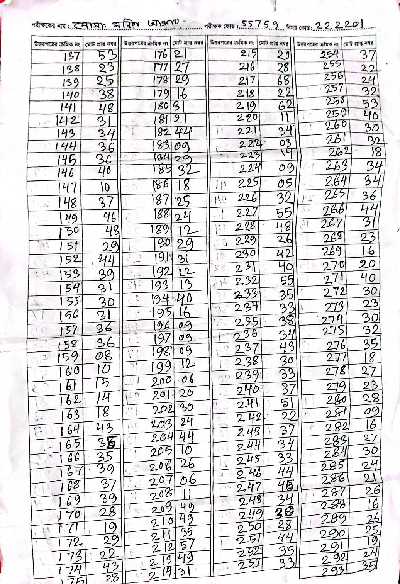 পরীক্ষকের নাম: পরীক্ষক কোড: 55759
উত্তরপত্রের ক্রমিক নং মোট প্রাপ্ত নম্বর উত্তরপত্রের ক্রমিক নং মোট প্রাপ্ত নম্বর উত্তরপত্রের ক্রমিক নং মোট প্রাপ্ত নম্বর উত্তরপত্রের ক্রমিক নং মোট প্রাপ্ত নম্বর
137 53 176 215 29 254 37
138 177 27 216 28 255
139 25 178 29 217 68 256 24
140 38 179 16 218 22 257 32
141 48 180 31 219 62 258 53
142 31 181 220 11 259 40
143 34 182 44 221 34 260 30
144 36 183 09 222 03 261 32
145 36 184 29 223 19 262 18
146 40 185 32 224 09 263 34
147 10 186 18 225 05 264 34
148 37 187 25 226 32 265 36
149 46 188 24 227 55 266 44
150 48 189 12 228 267 31
151 29 190 29 229 26 268 23
152 44 191 31 230 42 269 16
153 39 192 12 231 40 270 20
154 31 193 13 232 55 271 40
155 30 194 40 233 35 272 30
156 31 195 16 234 33 273 23
157 36 196 09 235 38 274 30
158 36 197 09 236 275 32
159 08 198 09 237 43 276 35
160 10 199 12 238 30 277 18
161 15 200 06 239 33 278 27
162 14 201 20 240 37 279 23
163 18 202 30 241 51 280 28
164 43 203 24 242 22 281 09
165 204 44 243 37 282 16
166 35 205 10 244 34 283
167 39 206 26 245 33 284 30
168 37 207 06 246 44 285 24
169 39 208 11 247 286 21
170 28 209 49 248 34 287 26
171 19 210 249 288 16
172 29 211 250 28 289
173 22 212 57 251 44 290
174 43 213 49 252 35 291 19
175 214 31 253 33